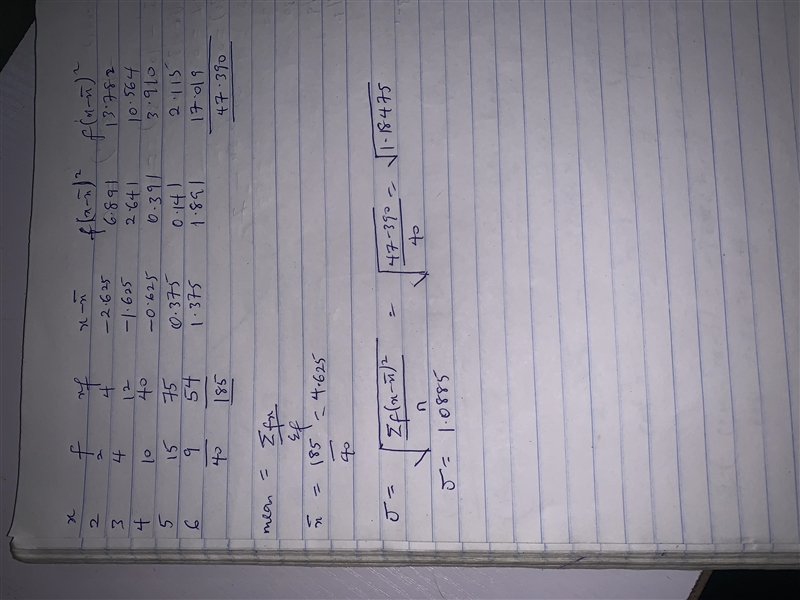 x f xf x-x̄ f(x-x̄)² f(x-x̄)²
2 2 4 -2.625 6.891 13.782
3 4 12 -1.625 2.641 10.564
4 10 40 -0.625 0.391 3.910
5 15 75 0.375 0.141 2.115
6 9 54 1.375 1.891 17.019
40 185 47.390
mean = Σfx/Σf
x̄ = 185/40 = 4.625
σ = √(Σf(x-x̄)²/n) = √(47.390/40) = √1.18475
σ = 1.0885